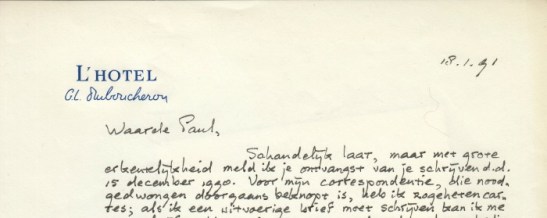 18.1.91
L'HOTEL
GL. Duboucheron
Waarde Paul,
Schandelijk laat, maar met grote
erkentelijkheid meld ik je ontvangst van je schrijven d.d.
15 december 1990. Voor mijn correspondentie, die nood-
gedwongen doorgaans beknopt is, heb ik zogeheten car-
tes; als ik een uitvoerige brief moet schrijven kan ik me